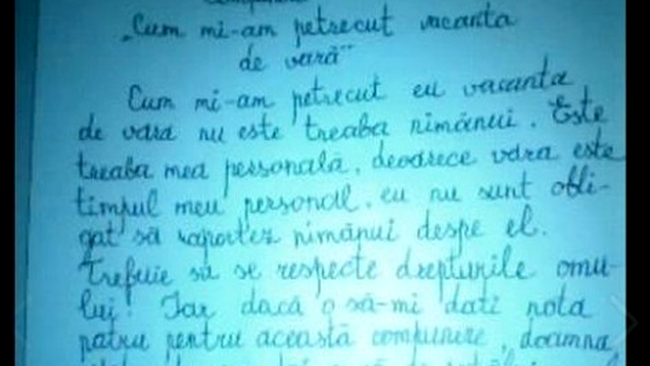 „Cum mi-am petrecut vacanta
de vară"
Cum mi-am petrecut eu vacanta
de vara nu este treaba nimănui. Este
treaba mea personală, deoarece vara este
timpul meu personal. eu nu sunt obli-
gat să raportez nimănui despe el.
Trebuie să se respecte drepturile omu-
lui! Iar dacă o să-mi dati nota
patru pentru această compunere, doamna